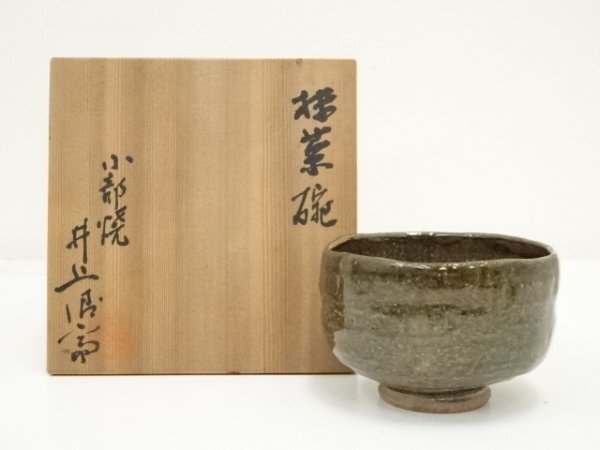 抹茶碗
小部焼
井上